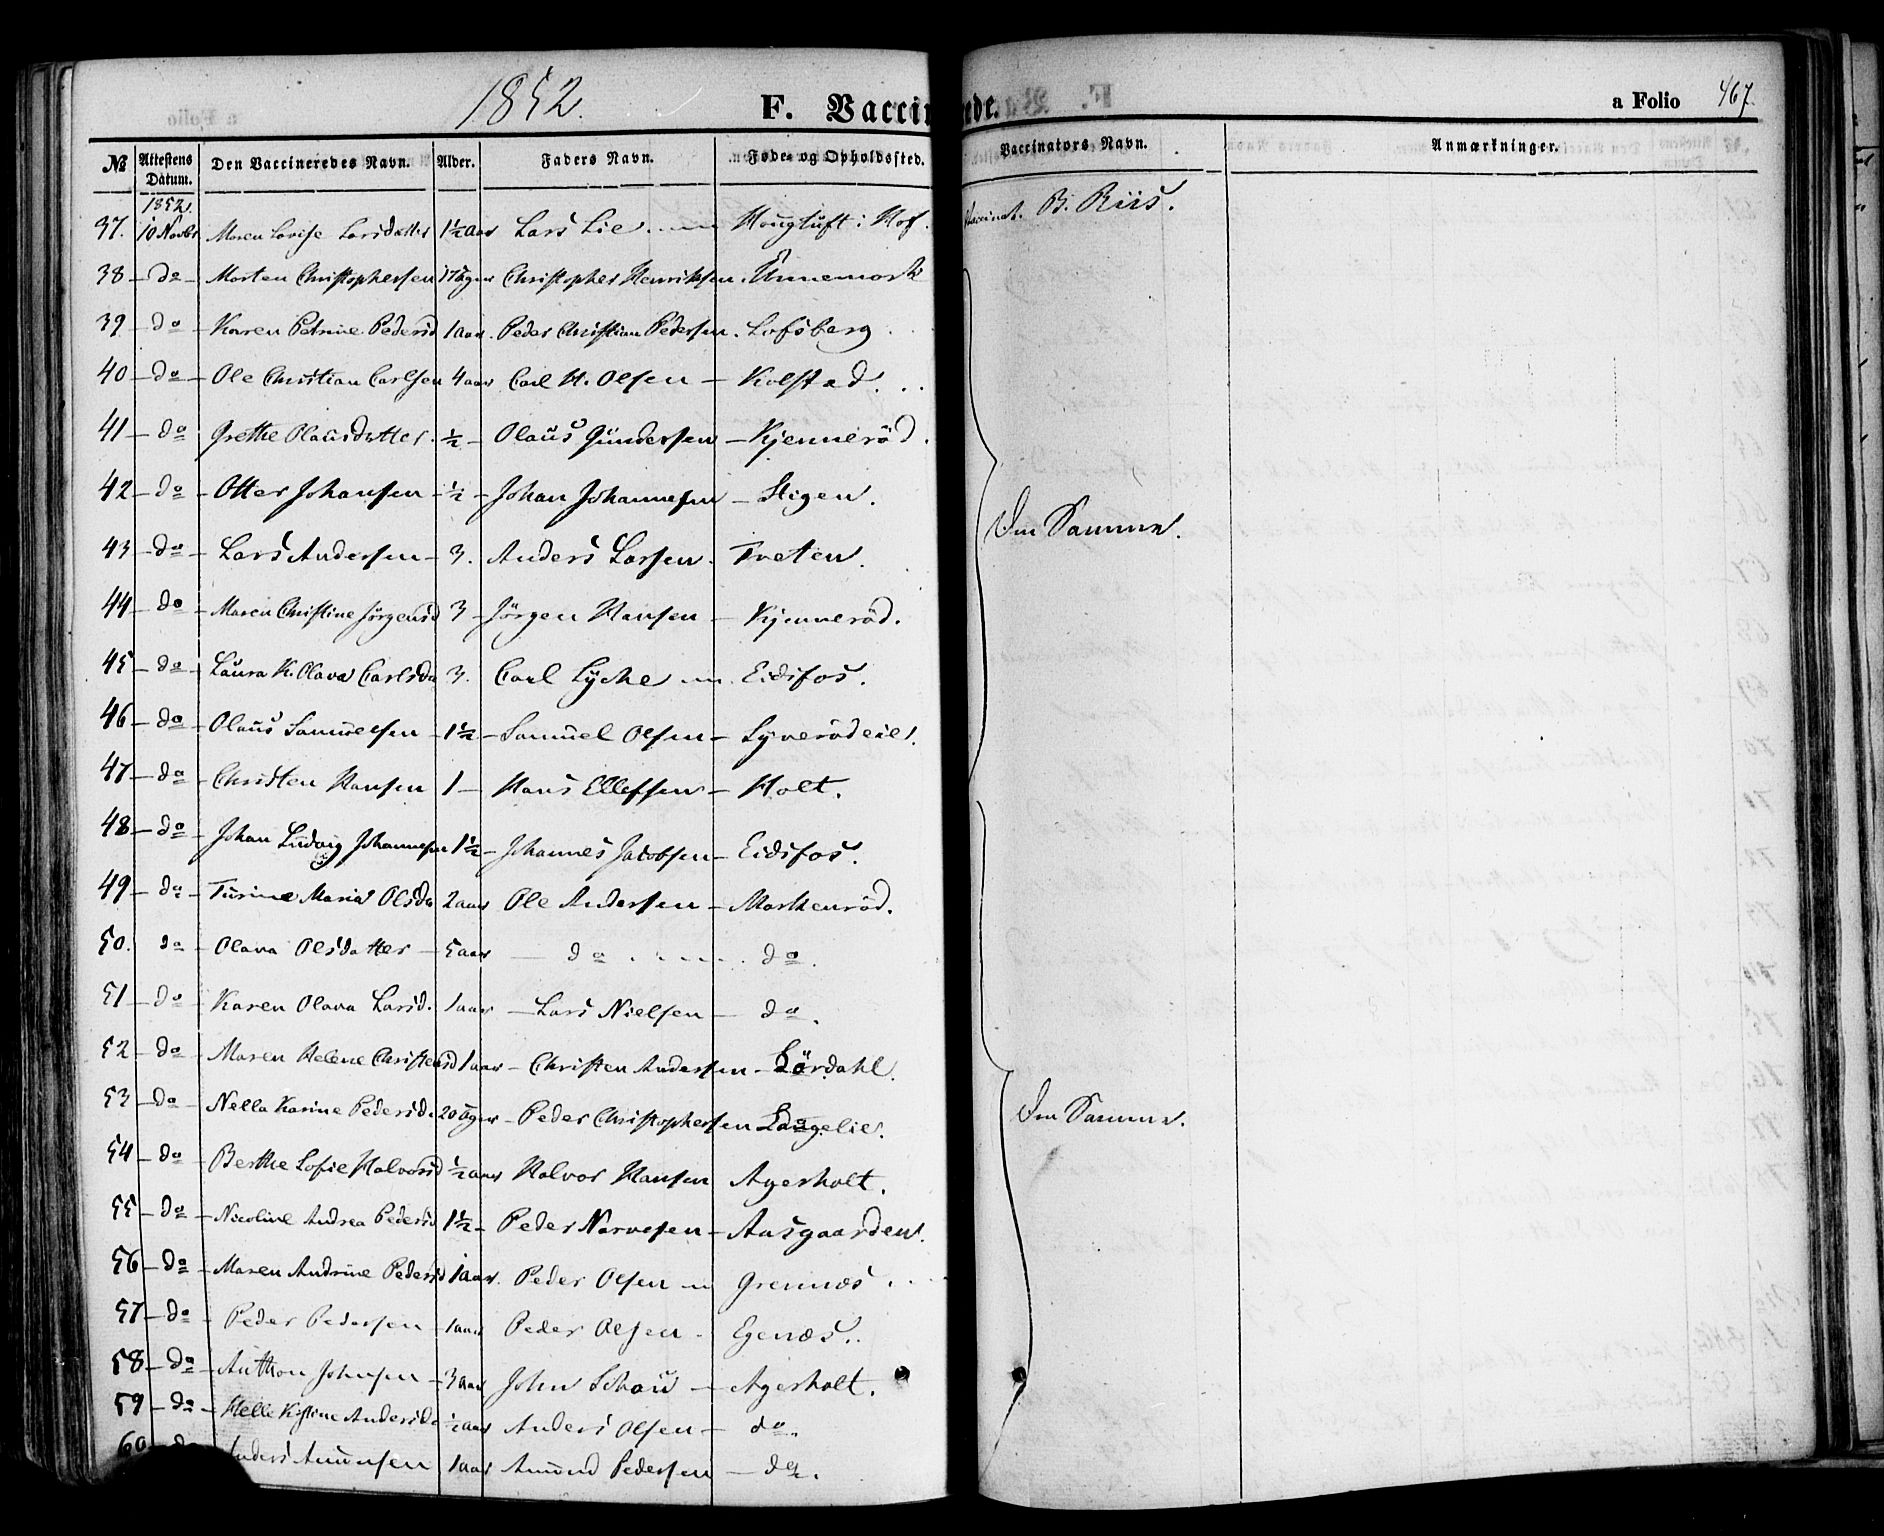 1852. F. Vaccinerede. a Folio 467.
№ Attestens Datum. Den Vaccineredes Navn. Alder. Faders Navn. Føde- og Opholdssted. Vaccinators Navn. Anmærkninger.
1852.
37. 10 Novbr Maren Lovise Larsdatter 1½ aar Lars Lie Hougtuft i Hof. Vaccinat. B. Riis.
38 - do - Morten Christophersen 17 Christopher Henriksen. Unnemork
39 - do - Karen Petrine Pedersd 1 aar. Peder Christian Pedersen. Lofsberg
40 - do - Ole Christian Carlsen 4 aar Carl H. Olsen - Kolstad.
41 - do - Grethe Olausdatter. ½ - Olaus Gundersen - Kjenneröd.
42 - do - Otter Johansen - ½ - Johan Johannesen - Stigen.
Den Samme.
43 - do - Lars Andersen - 3. Anders Larsen. Tveten.
44 - do - Maren Christine Jørgensd 3 - Jörgen Hansen - Kjenneröd.
45 - do - Laura K. Olava Carlsda 3. Carl Lyche Eidsfos.
46 - do - Olaus Samuelsen - 1½ - Samuel Olsen - Lyverödeie.
47 - do - Christen Hansen 1 - Hans Ellefsen - Holt.
48 - do - Johan Ludvig Johannesen 1½ - Johannes Jacobsen - Eidsfos.
49 - do - Turine Maria Olsda 2 aar Ole Andersen - Morkenröd.
50. do - Olava Olsdatter - 5 aar - do . . . . do.
51 - do - Karen Olava Larsd. 1 aar - Lars Nielsen - do.
52 - do - Maren Helene Christensd 1 aar - Christen Andersen - Lördahl.
53 - do - Nella Karine Pedersd. 20 Uger - Peder Christophersen Langelie.
Den Samme.
54 - do - Berthe Lofie Halvorsd ½ aar Halvor Hansen Agerholt.
55 - do - Nicoline Andrea Pedersd 1½ - Peder Narvesen - Aasgaarden.
56 - do - Maren Andrine Pedersd 1 aar. Peder Olsen Grennes
57 - do - Peder Pedersen - 1 aar Peder Olsen - Egenæs.
58 - do - Anthon Johnsen - 3 aar John Schou - Agerholt.
59 - do - Helle Kistine Andersda ½ aar Anders Olsen - do.
60 do Anders Amunsen 1 aar Amund Pedersen - do.